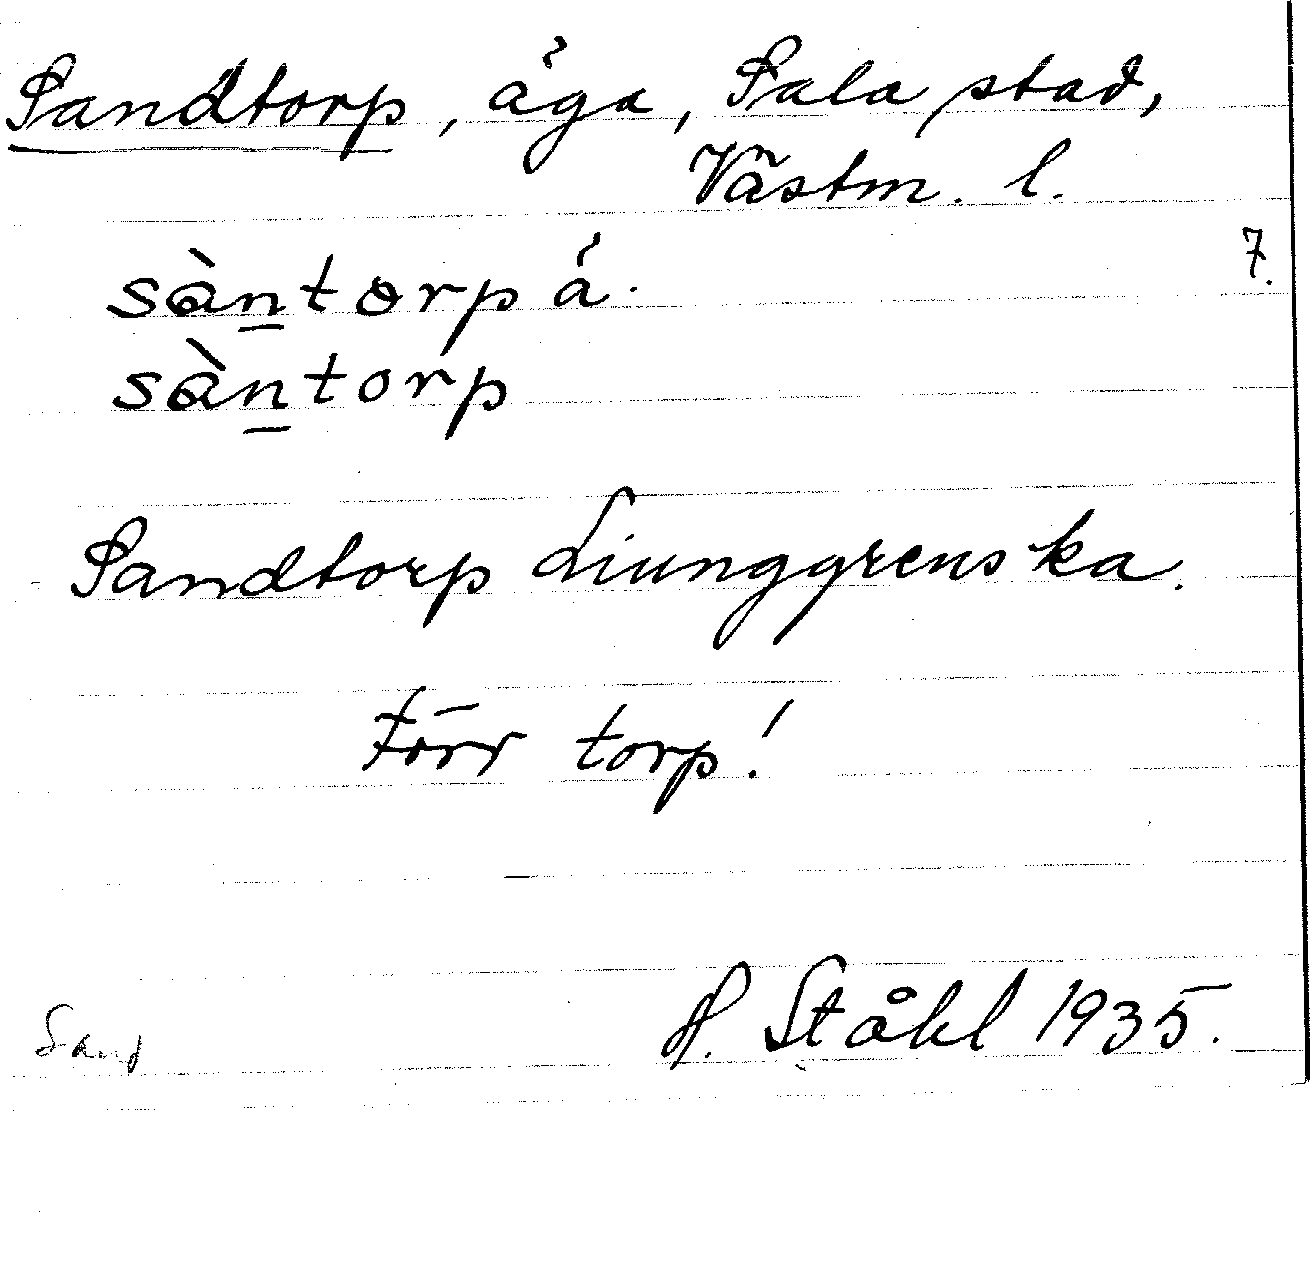 Sandtorp, äga, Sala stad,
Västm. l.
7.
sàn̲torp å.
sàn̲torp
Sandtorp Liunggrenska.
Förr torp!
H. Ståhl 1935.
Sand